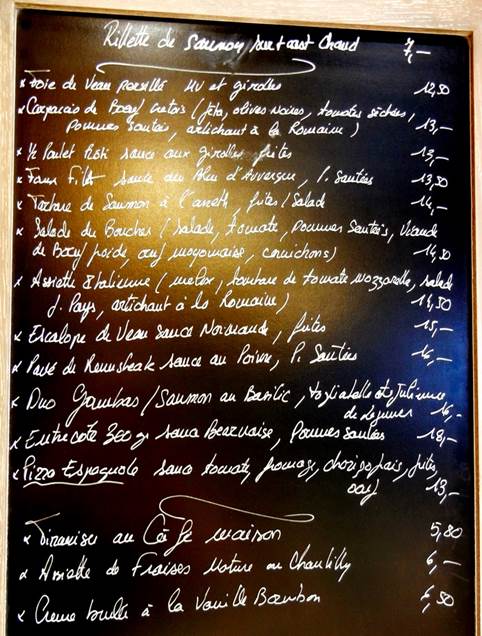 Rillette de Saumon sur toast Chaud 7,-
x Foie de Veau persillé riz et girolles 12,50
x Carpacio de Boeuf Cretois (féta, olives noires, tomates séchées,
pommes Sautées, artichaut à la Romaine) 13,-
x ½ Poulet Roti sauce aux girolles, frites 13,-
x Faux Filet sauce au Bleu d'Auvergne, P. Sautées 13,50
x Tartare de Saumon à l'aneth, frites / Salade 14,-
x Salade du Boucher (salade, tomate, pommes Sautées, Viande
de Boeuf froide, oeuf mayonnaise, cornichons) 14,50
x Assiette Italienne (melon, jambon de tomate mozzarella, salade
J. Pays, artichaut à la Romaine) 14,50
x Escalope de Veau sauce Normande, frites 15,-
x Pavé de Rumsteak sauce au Poivre, P. Sautées 16,-
x Duo Gambas / Saumon au Basilic, tagliatelle et Julienne
de légumes 16,-
x Entrecote 360 gr sauce Bearnaise, Pommes sautées 18,-
x Pizza Espagnole sauce tomate, fromage, chorizo, frites,
oeuf 13,-
x Tiramisu au Café maison 5,80
x Assiette de Fraises Nature ou Chantilly 6,-
x Creme brulée à la Vanille Bourbon 6,50